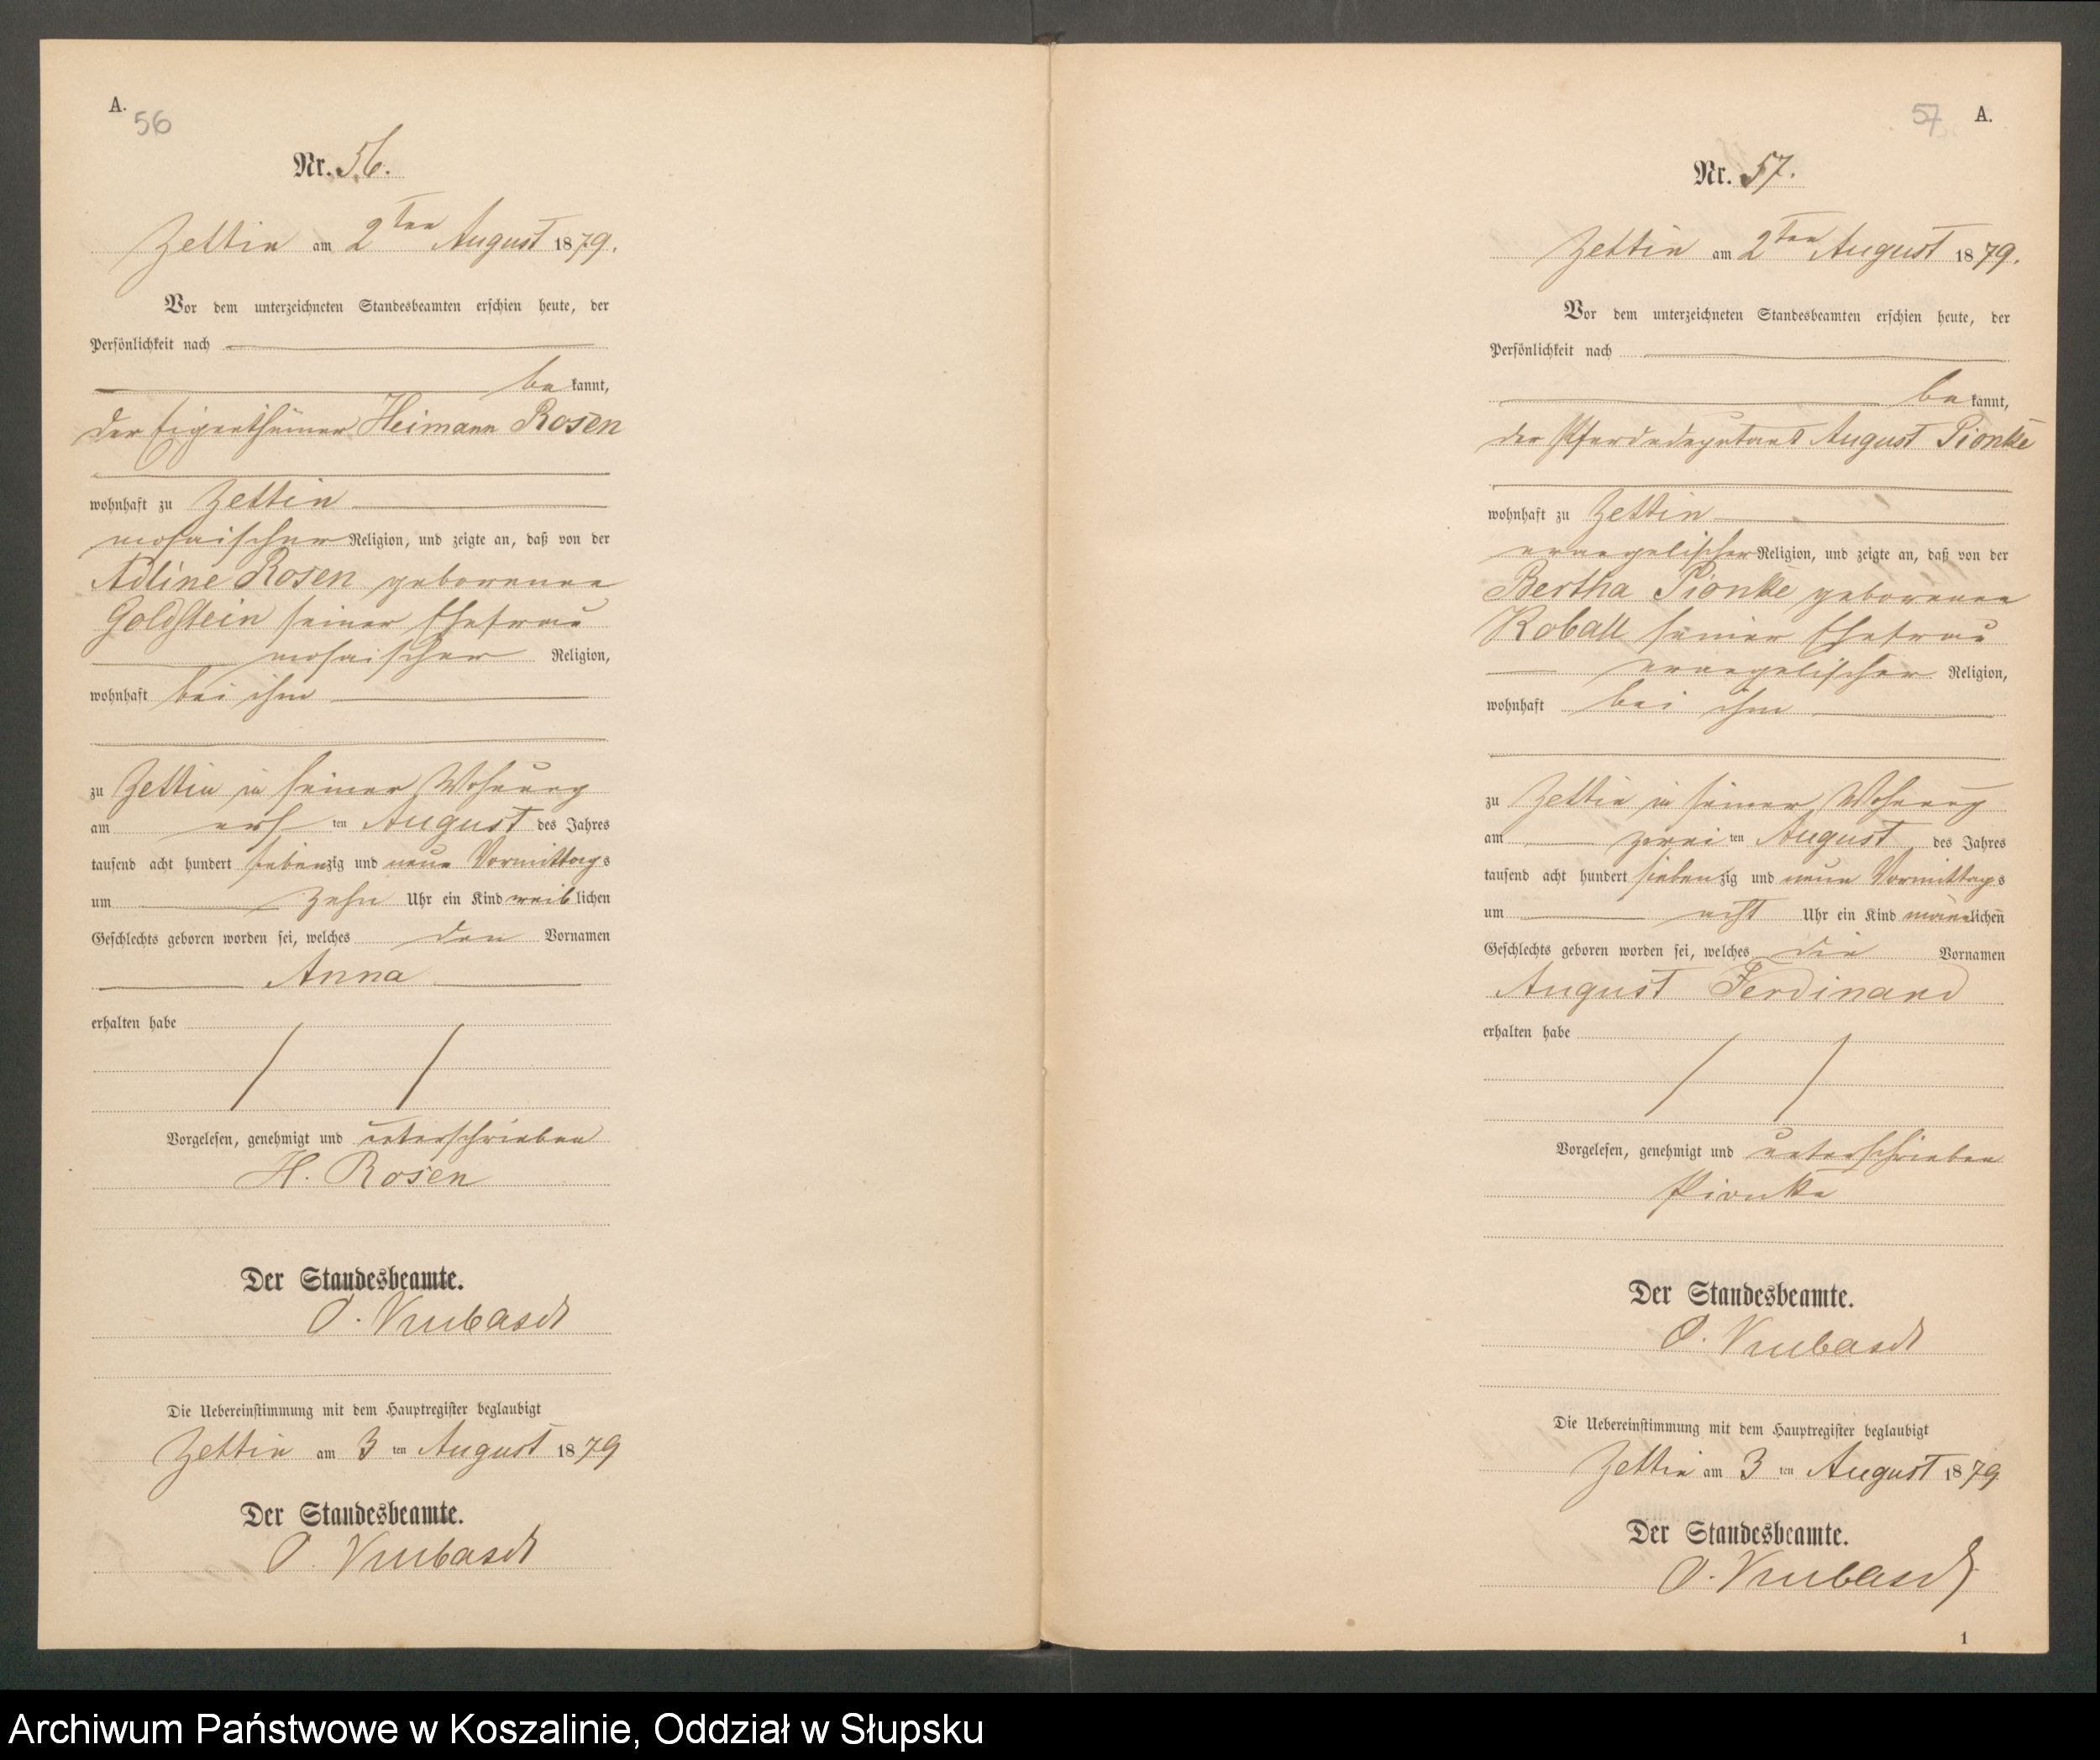 A.
56
Nr. 56.
Zettin am 2ten August 1879.
Vor dem unterzeichneten Standesbeamten erschien heute, der
Persönlichkeit nach
bekannt,
der Eigenthümer Heimann Rosen
wohnhaft zu Zettin
mosaischer Religion, und zeigte an, daß von der
Adline Rosen geborenen
Goldstein seiner Ehefrau
mosaischer Religion,
wohnhaft bei ihm
zu Zettin in seiner Wohnung
am ersten August des Jahres
tausend acht hundert siebenzig und neun Vormittags
um zehn Uhr ein Kind weiblichen
Geschlechts geboren worden sei, welches den Vornamen
Anna
erhalten habe
Vorgelesen, genehmigt und unterschrieben
H. Rosen
Der Standesbeamte.
O.
Die Uebereinstimmung mit dem Hauptregister beglaubigt
Zettin am 3 ten August 1879
Der Standesbeamte.
O.
57 A.
Nr. 57.
Zettin am 2ten August 1879.
Vor dem unterzeichneten Standesbeamten erschien heute, der
Persönlichkeit nach
bekannt,
der Pferdedeputant August Pionke
wohnhaft zu Zettin
evangelischer Religion, und zeigte an, daß von der
Bertha Pionke geborenen
seiner Ehefrau
evangelischer Religion,
wohnhaft bei ihm
zu Zettin in seiner Wohnung
am zweiten August des Jahres
tausend acht hundert siebenzig und neun Vormittags
um acht Uhr ein Kind männlichen
Geschlechts geboren worden sei, welches die Vornamen
August Ferdinand
erhalten habe
Vorgelesen, genehmigt und unterschrieben
Pionke
Der Standesbeamte.
O.
Die Uebereinstimmung mit dem Hauptregister beglaubigt
Zettin am 3 ten August 1879
Der Standesbeamte.
O.
1
Archiwum Państwowe w Koszalinie, Oddział w Słupsku